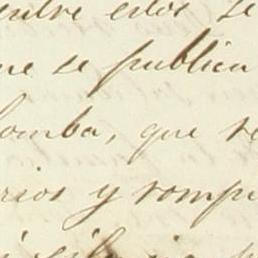 entre estos se
ue se publica
omba, que re
rios y rompe